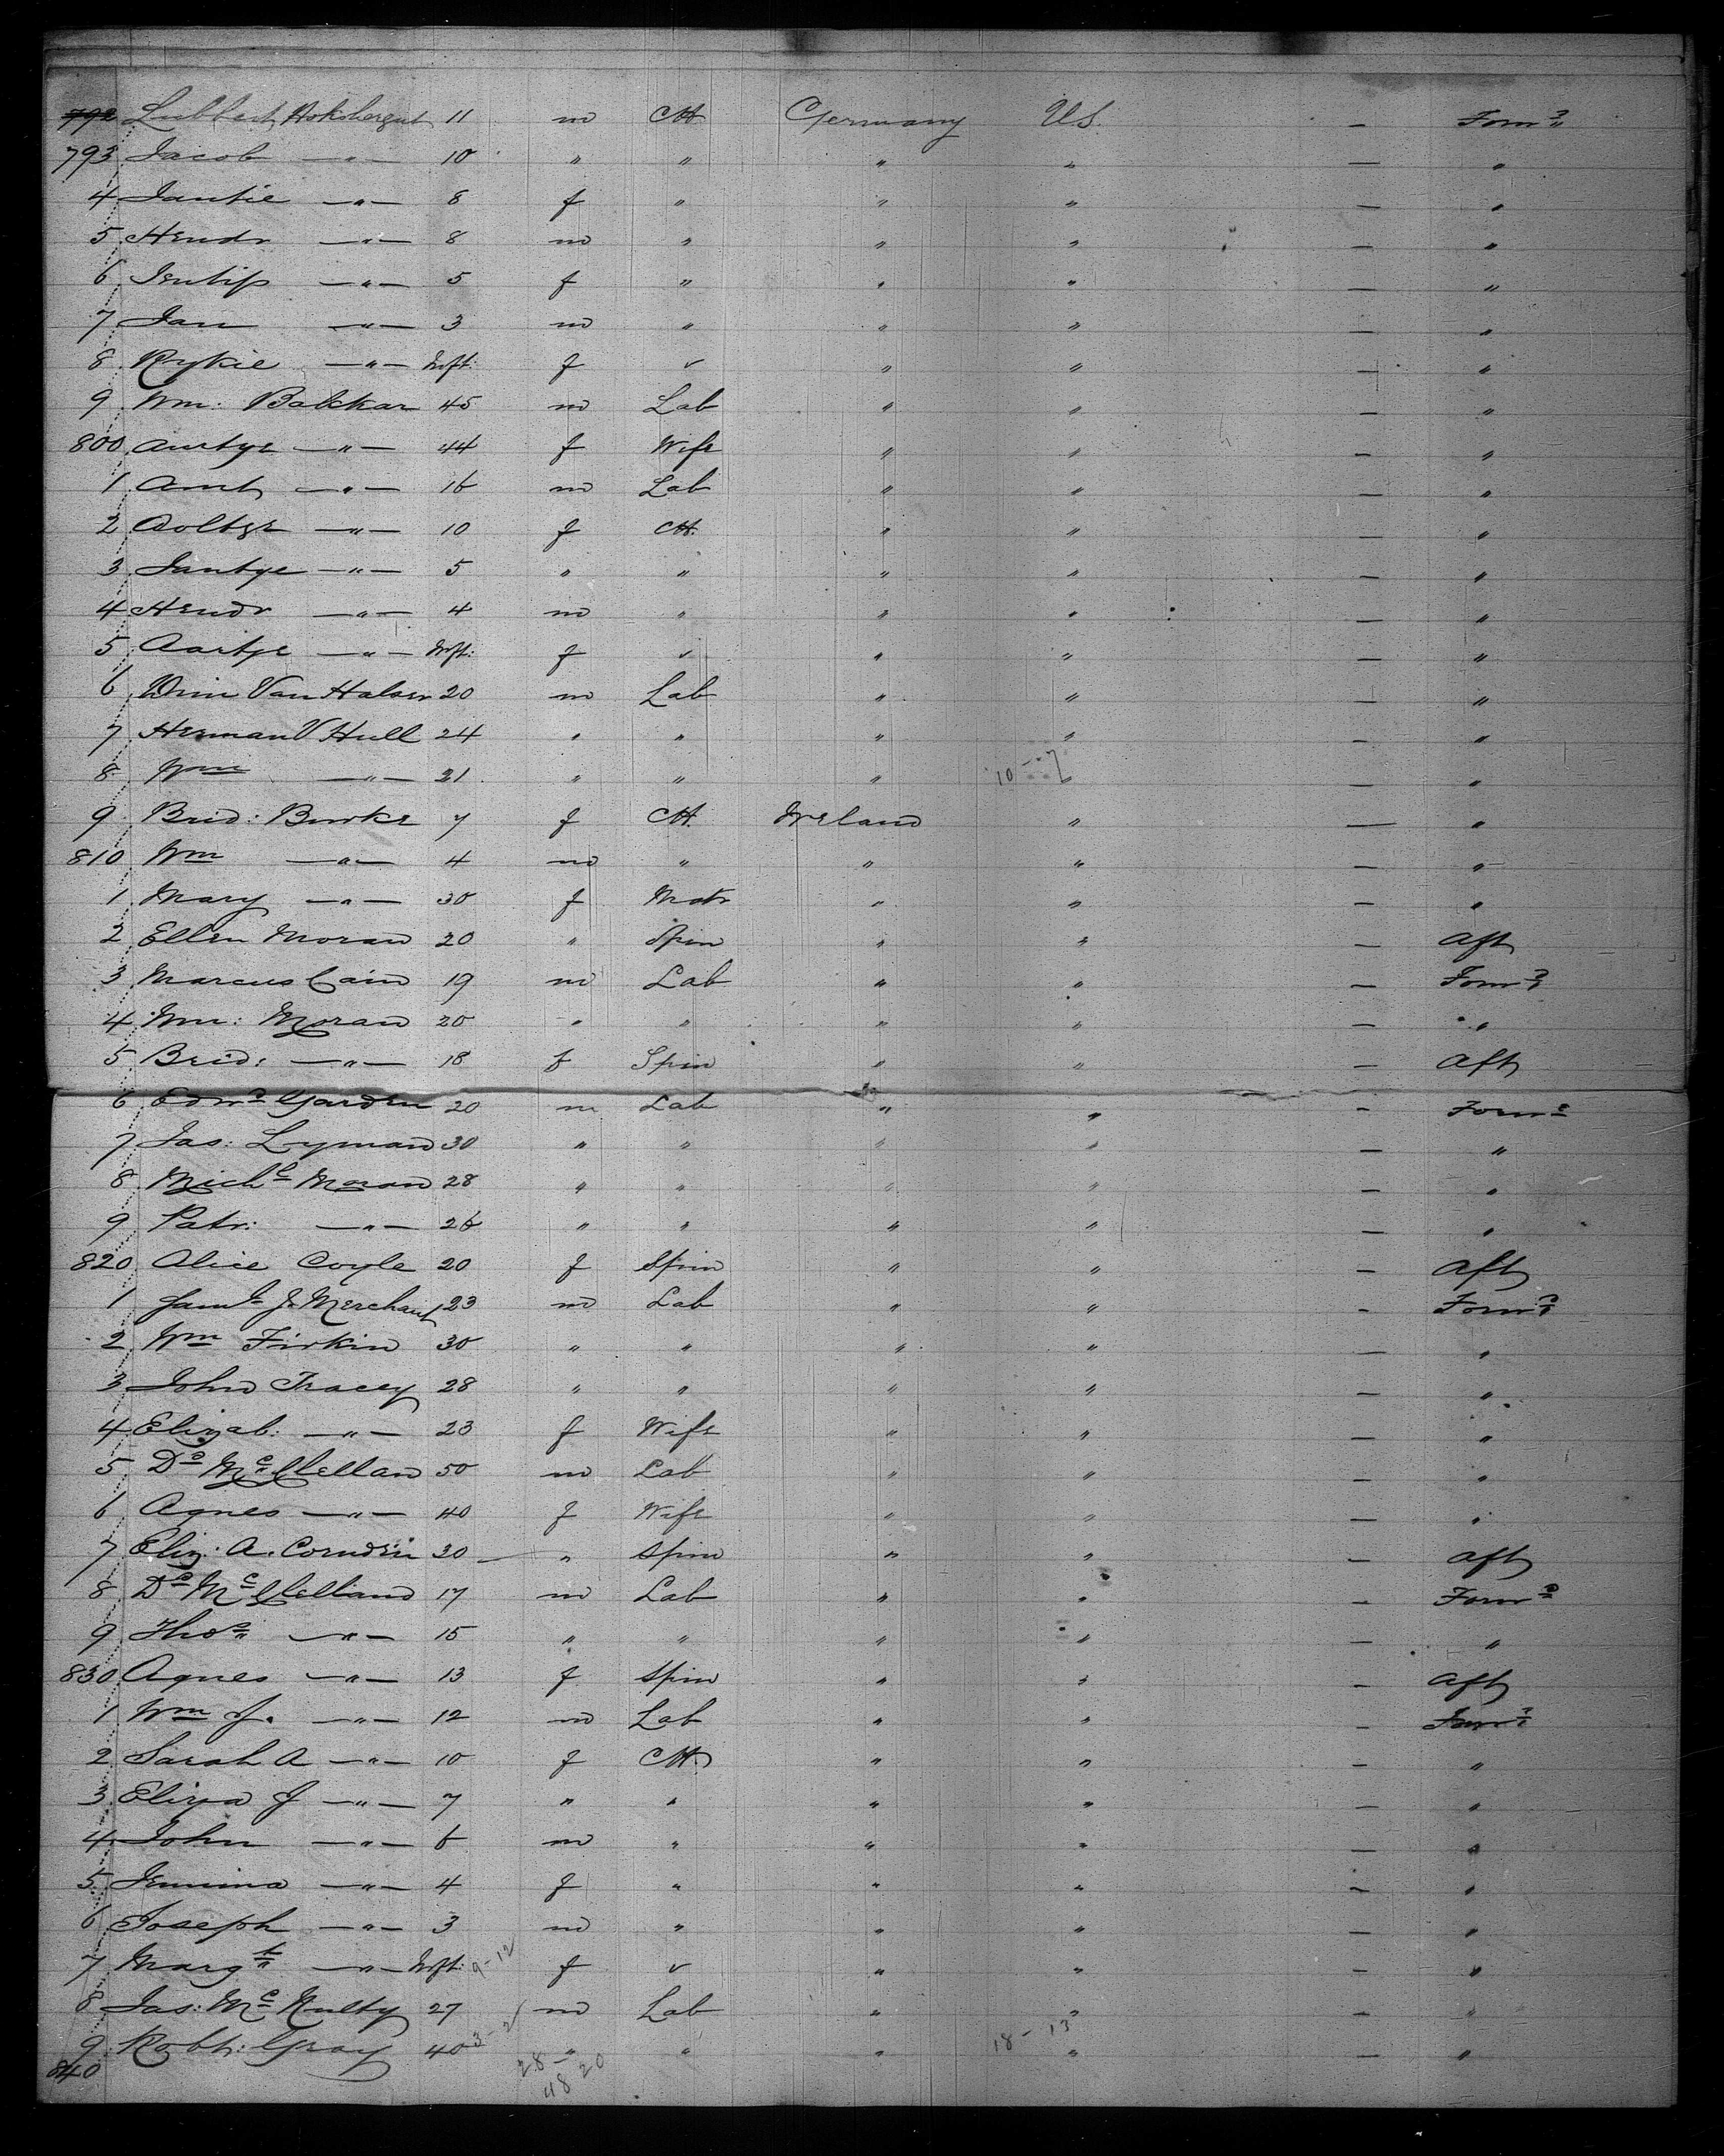 792 Lubbert 11 m Ch Germany U.S. — Forwd
793 Jacob —"— 10 " " " " — "
4 Jantie —"— 8 f " " " — "
5 Hendr —"— 8 m " " " — "
6 —"— 5 f " " " — "
7 Jan —"— 3 m " " " — "
8 Rykie —"— Inft: f v " " — "
9 Wm: Bakkar 45 m Lab " " — "
800 Aartye —"— 44 f Wife " " — "
1 Arnt —"— 16 m Lab " " — "
2 —"— 10 f Ch. " " — "
3 Jantye —"— 5 " " " " — "
4 Hendr —"— 4 m " " " — "
5 Aartje —"— Inft: f v " " — "
6 Wm Van Halsen 20 m Lab " " — "
7 Herman V Hull 24 " " " " — "
8 Wm —"— 21 " " " 10 - 7 " — "
9 Brid: Burke 7 f Ch. Ireland " — "
810 Wm —"— 4 m " " " — "
1 Mary —"— 30 f Matr " " — "
2 Ellen Moran 20 " Spin " " — Aft
3 Marcus Cain 19 m Lab " " — Forwd
4 Wm: Moran 20 " " " " — "
5 Brid: —"— 18 f Spin " " — Aft
6 Edwd Garden 20 m Lab " " — Forwd
7 Jas: Lyman 30 " " " " — "
8 Michl Moran 28 " " " " — "
9 Patr: —"— 26 " " " " — "
820 Alice Coyle 20 f Spin " " — Aft
1 Saml J. Merchant 23 m Lab " " — Forwd
2 Wm Firkin 30 " " " " — "
3 John Tracey 28 " " " " — "
4 Elizab: —"— 23 f Wife " " — "
5 Dd McClellan 50 m Lab " " — "
6 Agnes —"— 40 f Wife " " — "
7 Eliz: A. 30 — " Spin " " — Aft
8 Dd McClelland 17 m Lab " " — Forwd
9 Thos —"— 15 " " " " — "
830 Agnes —"— 13 f Spin " " — Aft
1 Wm J. —"— 12 m Lab " " — Forwd
2 Sarah A —"— 10 f Ch. " " — "
3 Eliza J —"— 7 " " " " — "
4 John —"— 6 m " " " — "
5 Jemima —"— 4 f " " " — "
6 Joseph —"— 3 m " " " — "
7 Margt —"— Inft: 9-12 f v " " — "
8 Jas: McNulty 27 m Lab " " — "
9 Robt: Gray 40 3-2 " " " 18 - 13 " — "
840 28 - 20
48